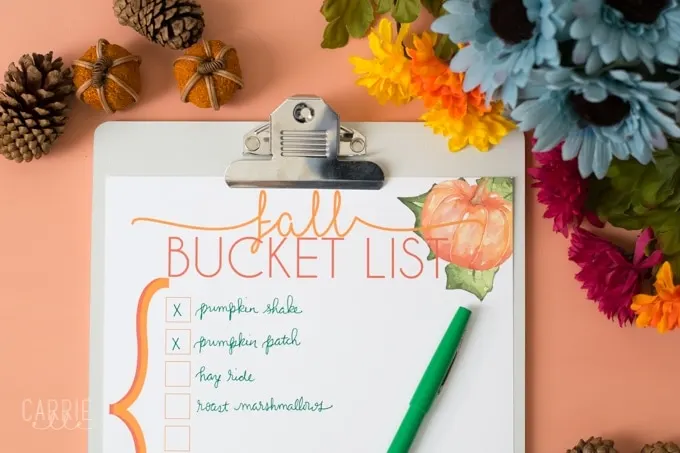 fall
BUCKET LIST
X pumpkin shake
X pumpkin patch
haye ride
roast marshmallows
CARRIE
elle